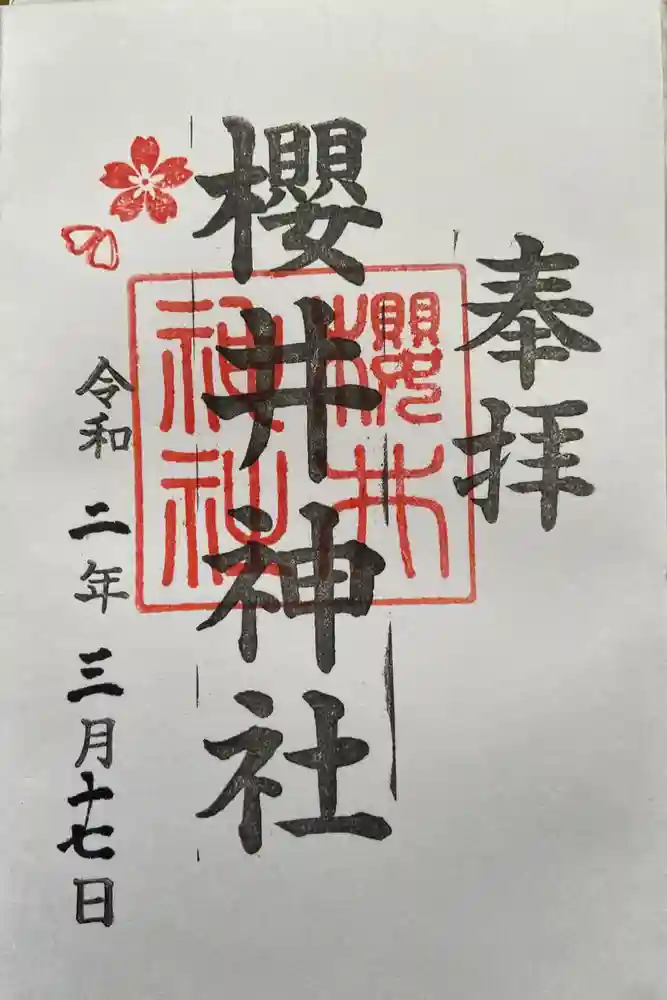 奉拝
櫻井神社
櫻井
神社
令和二年三月十七日